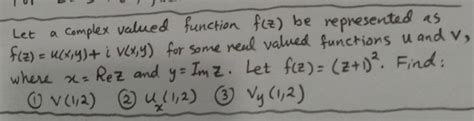 Let a complex valued function f(z) be represented as
f(z) = u(x,y) + i V(x,y) for some real valued functions u and V,
where x = Re z and y = Im z. Let f(z) = (z+1)². Find:
① V(1,2) ② uₓ(1,2) ③ Vy(1,2)